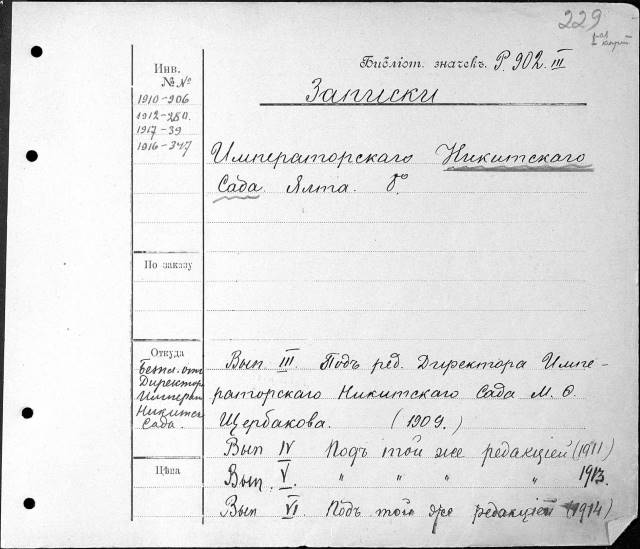 229
Библіот. значекъ. Р. 902. III
Инв.
№№
Записки
1910-206
1912-280.
1917-39
1916-347
Императорскаго Никитскаго
Сада. Ялта. 8°.
По заказу
Откуда
Безпл. отъ
Директора
Императ
Никитск
Сада.
Вып III. Подъ ред. Директора Импе-
раторскаго Никитскаго Сада М. Ѳ.
Щербакова. (1909.)
Вып IV Подъ той же редакціей (1911)
Цѣна
Вып. V. " " " " 1913.
Вып VI. Подъ той же редакціей (1914)